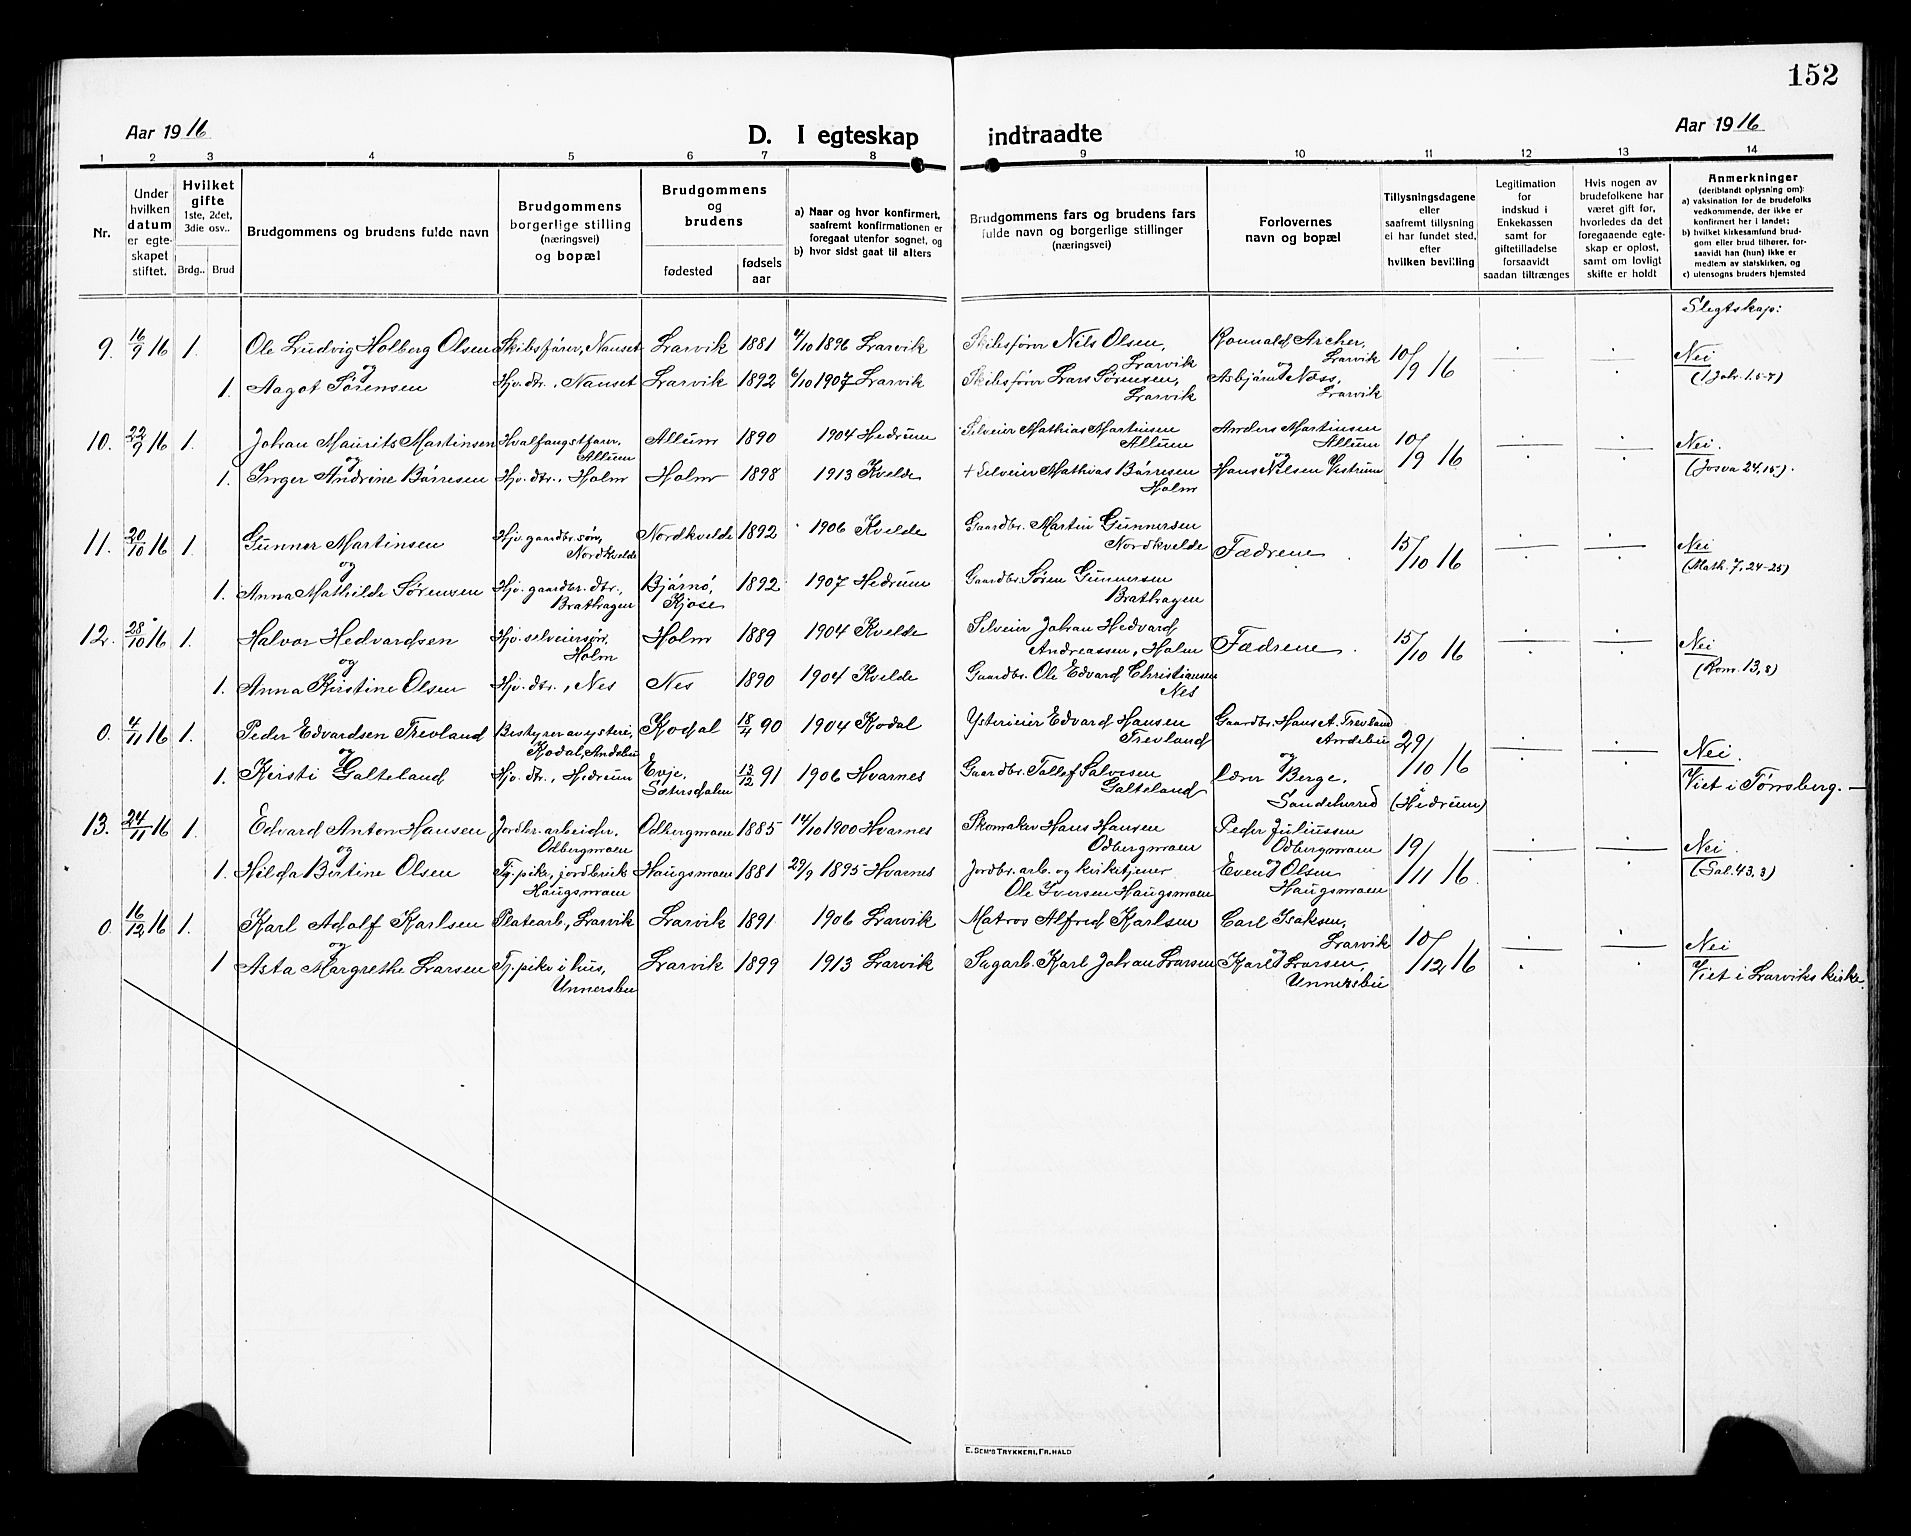 152
Aar 1916
D. I egteskap indtraadte
Aar 1916
1 2 3 4 5 6 7 8 9 10 11 12 13 14
Nr.
Under hvilken datum er egteskapet stiftet.
Hvilket gifte 1ste, 2det, 3die osv..
Brdg.. Brud
Brudgommens og brudens fulde navn
Brudgommens borgerlige stilling (næringsvei) og bopæl
Brudgommens og brudens
fødested
fødsels aar
a) Naar og hvor konfirmert, saafremt konfirmationen er foregaat utenfor sognet, og
b) hvor sidst gaat til alters
Brudgommens fars og brudens fars fulde navn og borgerlige stillinger (næringsvei)
Forlovernes navn og bopæl
Tillysningsdagene eller saafremt tillysning ei har fundet sted, efter hvilken bevilling
Legitimation for indskud i Enkekassen samt for giftetilladelse forsaavidt saadan tiltrænges
Hvis nogen av brudefolkene har været gift før, hvorledes da det foregaaende egteskap er opløst, samt om lovligt skifte er holdt
Anmerkninger (deriblandt oplysning om):
a) vaksination for de brudefolks vedkommende, der ikke er konfirmert her i landet;
b) hvilket kirkesamfund brudgom eller brud tilhører, forsaavidt han (hun) ikke er medlem av statskirken, og
c) utensogns bruders hjemsted
Slegtskap:
9. 16/9 16 1. Ole Ludvig Holberg Olsen Skibsfører, Nanset Larvik 1881 4/10 1896 Larvik Skibsfører Nils Olsen, Larvik Ronnald Archer, Larvik 10/9 16 Nei
og
1. Aagot Sørensen Hjv. dtr., Nanset Larvik 1892 6/10 1907 Larvik Skibsfører Lars Sørensen, Larvik Asbjørn Næss, Larvik (1 Joh. 1.5-7)
10. 22/9 16 1. Johan Maurits Martinsen Hvalfangstfarer, Allum Allum 1890 1904 Hedrum Selveier Mathias Martinsen Allum Anders Martinsen Allum 10/9 16 Nei.
og
1. Inger Andrine Børresen Hjv. dtr., Holm Holm 1898 1913 Kvelde + Selveier Mathias Børresen Holm Hans Nilsen Vestrum (Josva 24.15).
11. 20/10 16 1. Gunner Martinsen Hjv. gaardbr. søn, Nordkvelde Nordkvelde 1892 1906 Kvelde Gaardbr. Martin Gunnersen Nordkvelde Fædrene. 15/10 16 Nei
og
1. Anna Mathilde Sørensen Hjv. gaardbr. dtr., Brathagen Bjørnø, Kjose 1892 1907 Hedrum Gaardbr. Søren Gunnersen Brathagen (Math. 7, 24-25)
12. 28/10 16 1. Halvor Hedvardsen Hjv. selveiersøn, Holm Holm 1889 1904 Kvelde Selveier Johan Hedvard Andreassen, Holm Fædrene. 15/10 16 Nei
og
1. Anna Kirstine Olsen Hjv. dtr., Nes Nes 1890 1904 Kvelde Gaardbr. Ole Edvard Christiansen Nes (Rom. 13, 8)
0. 4/11 16 1. Peder Edvardsen Trevland Bestyrer av ysteri, Kodal, Andebu Kodal 18/4 90 1904 Kodal Ysterieier Edvard Hansen Trevland Gaardbr. Hans A. Trevland Andebu 29/10 16 Nei.
og
1. Kirsti Galteland Hjv. dtr., Hedrum Evje, Sætersdalen 13/12 91 1906 Hvarnes Gaardbr. Tallef Salvesen Galteland og Lærer Berge, Sandeherred (Hedrum) Viet i Tønsberg.
13. 24/11 16 1. Edvard Anton Hansen Jordbr. arbeider, Odbergmoen Odbergmoen 1885 14/10 1900 Hvarnes Skomaker Hans Hansen Odbergmoen Peder Juliussen Odbergmoen 19/11 16 Nei.
og
1. Hilda Bertine Olsen Tj. pike, jordbruk Haugsmoen Haugsmoen 1881 29/9 1895 Hvarnes Jordbr. arb. og kirketjener Ole Iversen Haugsmoen Even Olsen Haugsmoen (Sal. 43, 3)
0. 16/12 16 1. Karl Adolf Karlsen Platearb., Larvik Larvik 1891 1906 Larvik Matros Alfred Karlsen Carl Isaksen, Larvik 10/12 16 Nei
og
1 Asta Margrethe Larsen Tj. pike i hus, Unnersbu Larvik 1899 1913 Larvik Sagarb. Karl Johan Larsen Karl Larsen, Unnersbu Viet i Larviks kirke.
E. SEM'S TRYKKERI, FR.HALD